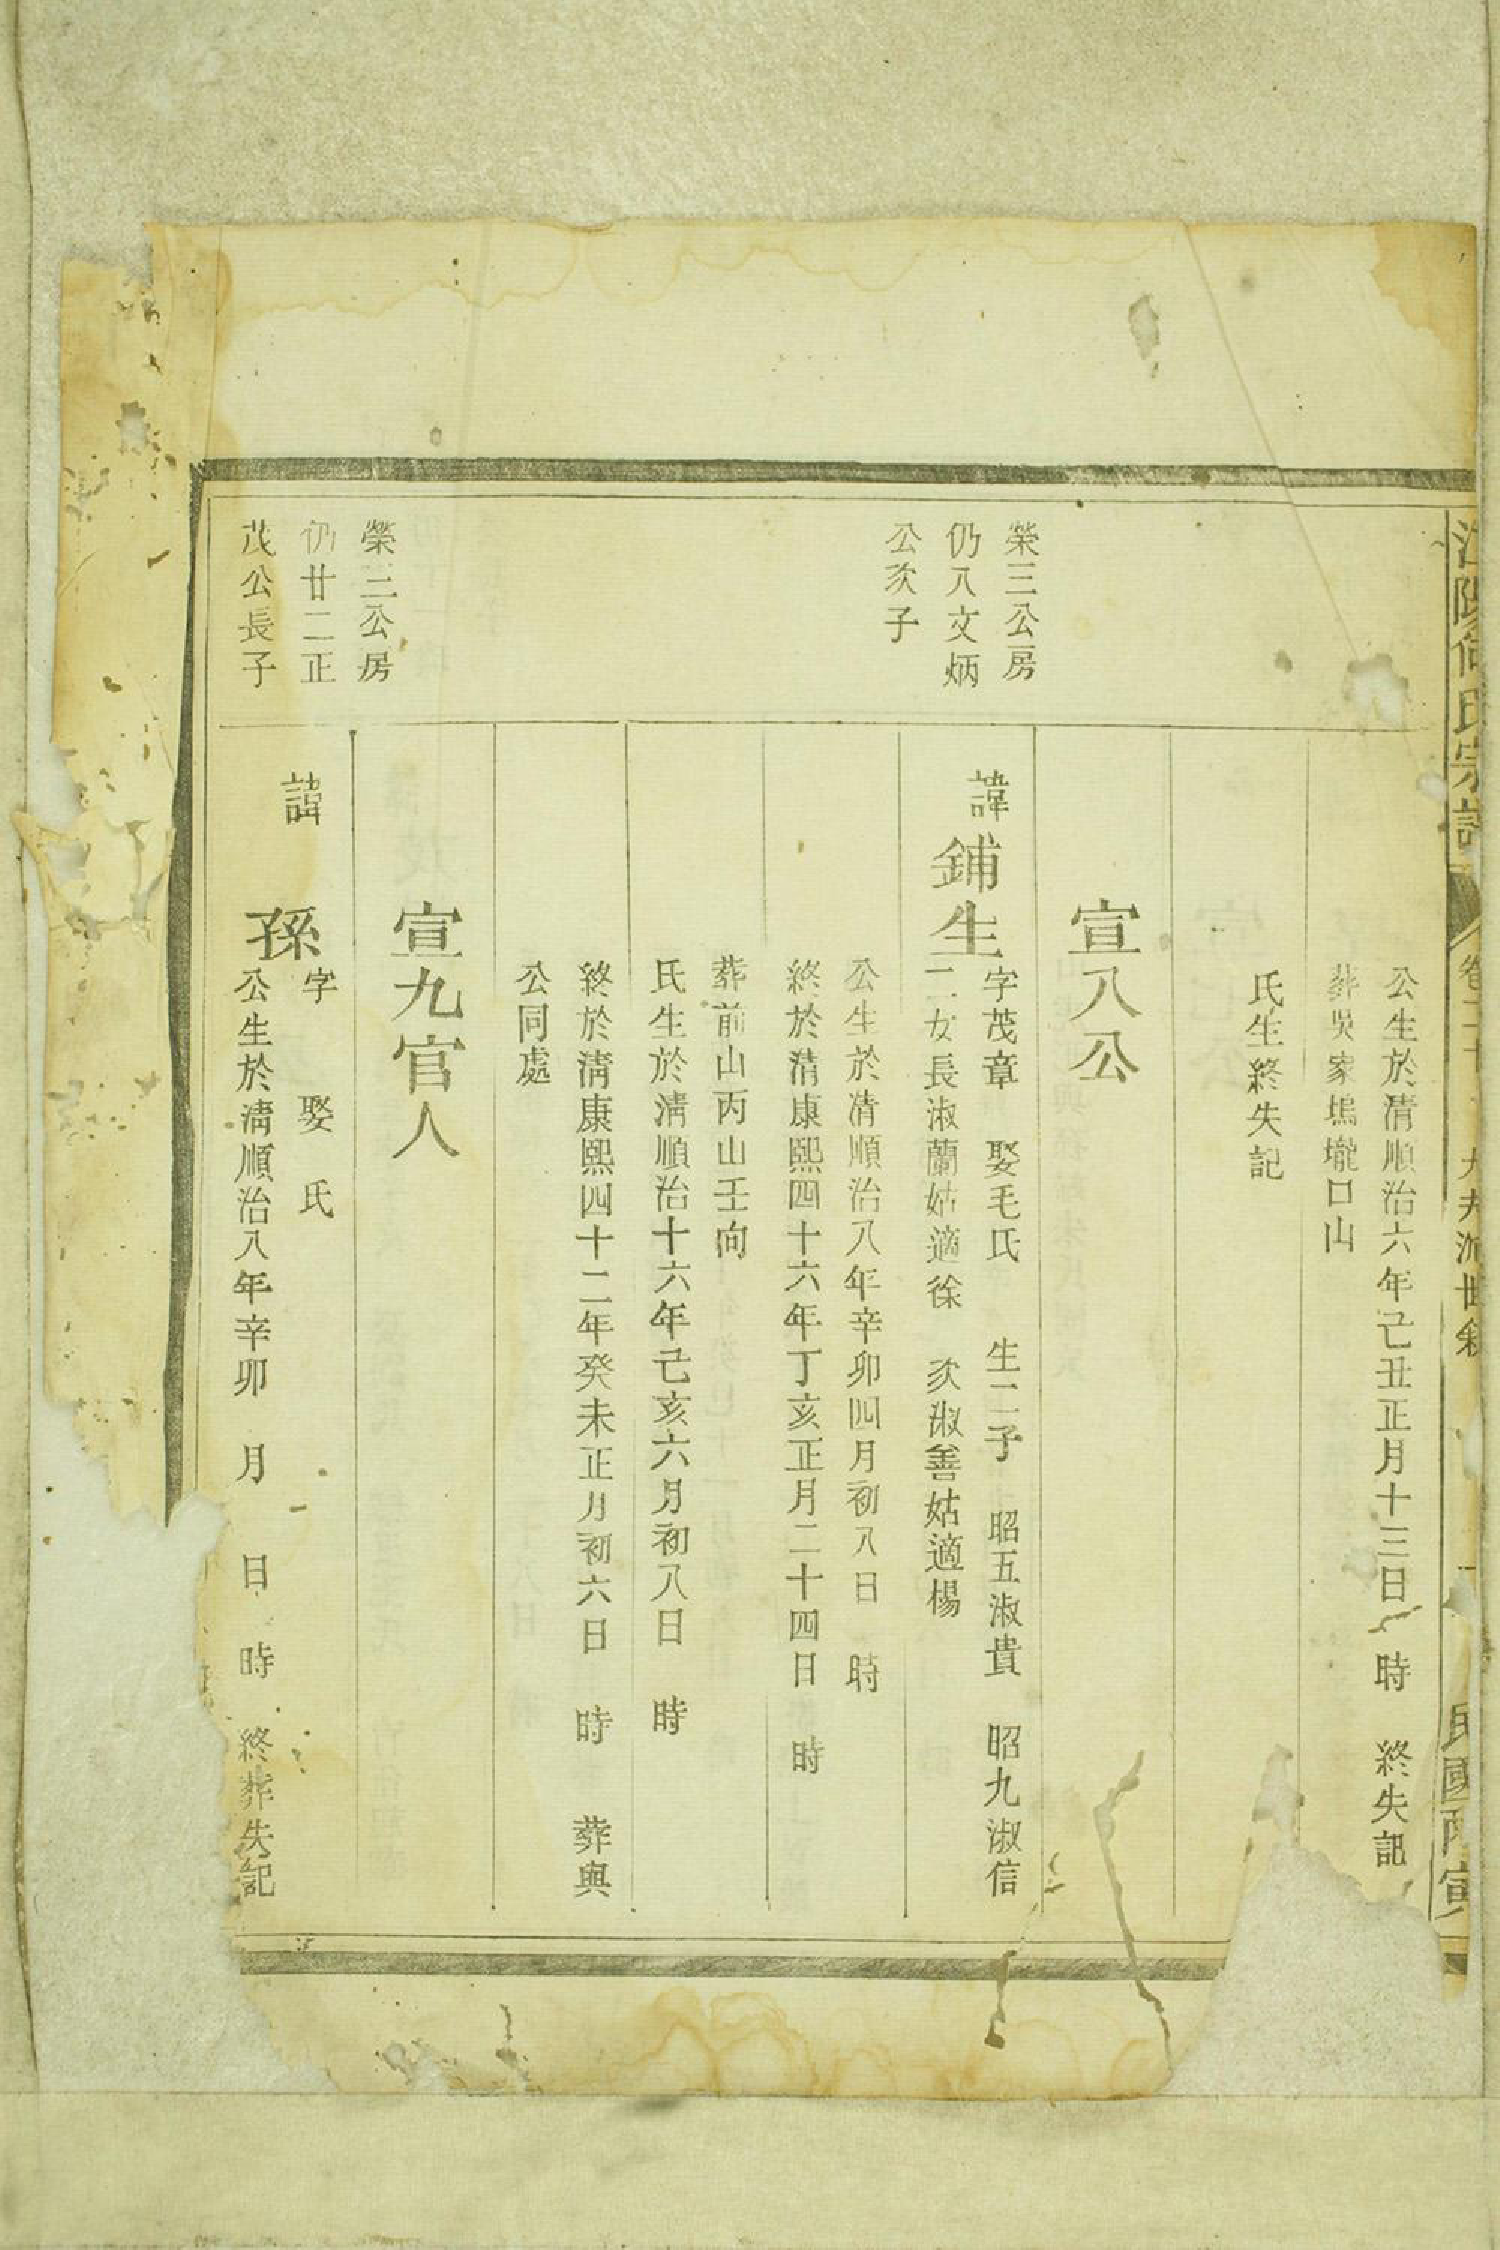 公生於清順治六年己丑正月十三日　時　終失記
葬吳家塢壠口山
氏生終失記
宣八公
榮三公房
仍八文炳
公次子
諱鋪生
字茂章　娶毛氏　生二子　昭五淑貴　昭九淑信
二女長淑蘭姑適徐　次淑善姑適楊
公生於清順治八年辛卯四月初八日　時
終於清康熙四十六年丁亥正月二十四日　時
葬前山丙山壬向
氏生於清順治十六年己亥六月初八日　時
終於清康熙四十二年癸未正月初六日　時　葬與
公同處
宣九官人
榮二公房
仍廿二正
茂公長子
諱　孫
字　娶　氏
公生於清順治八年辛卯　月　日　時　終葬失記